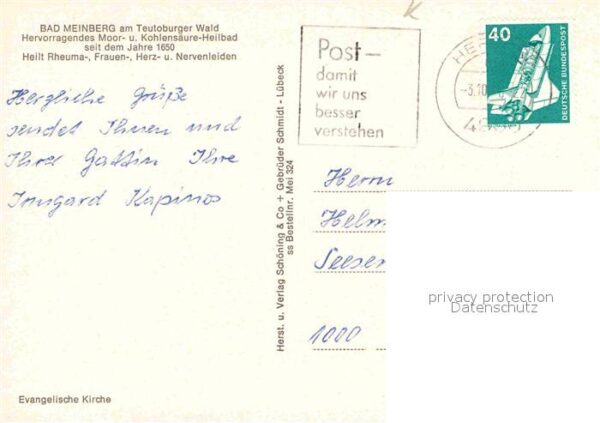 BAD MEINBERG am Teutoburger Wald
Hervorragendes Moor- u. Kohlensäure-Heilbad
seit dem Jahre 1650
Heilt Rheuma-, Frauen-, Herz- u. Nervenleiden
Herzliche Grüße
sendet Ihnen und
Ihrer Gattin Ihre
Irmgard Kapinos
Evangelische Kirche
Herst. u. Verlag Schöning & Co + Gebrüder Schmidt - Lübeck
ss Bestellnr. Mei 324
Post–
damit
wir uns
besser
verstehen
40
DEUTSCHE BUNDESPOST
Herrn
Helm
Seesen
1000
privacy protection
Datenschutz